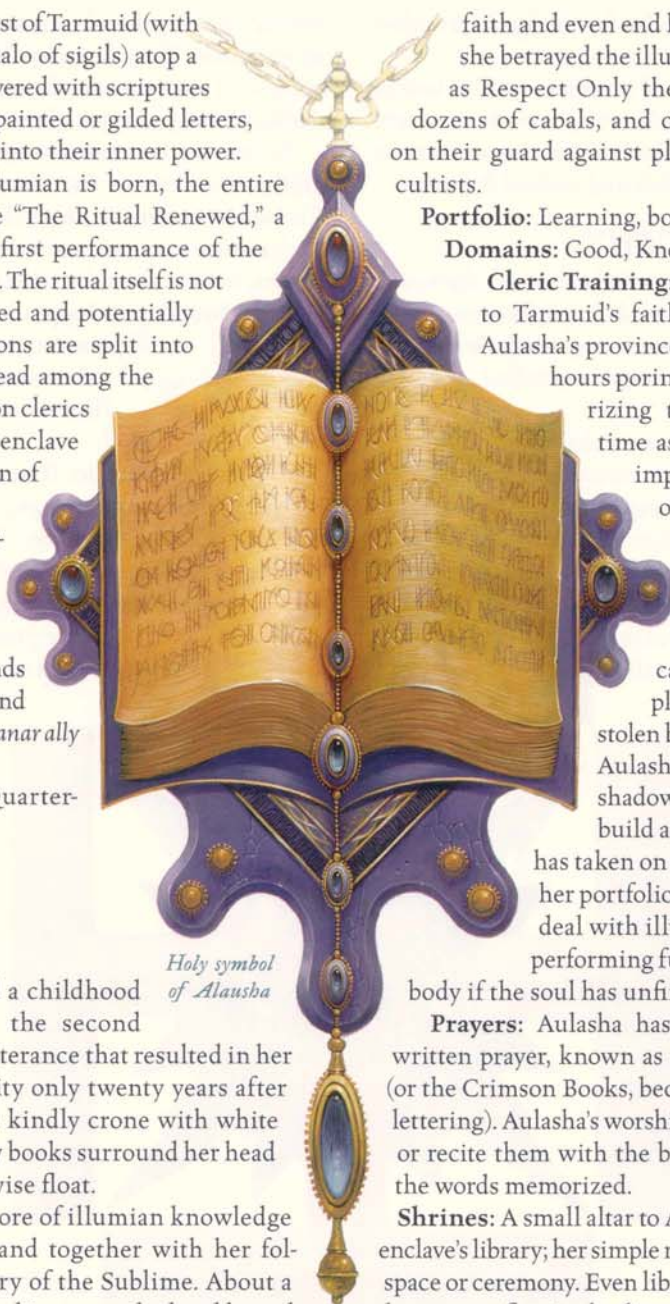 st of Tarmuid (with
alo of sigils) atop a
vered with scriptures
painted or gilded letters,
into their inner power.
umian is born, the entire
e “The Ritual Renewed,” a
first performance of the
. The ritual itself is not
ed and potentially
ons are split into
ead among the
on clerics
enclave
n of
nds
nd
anar ally
uarter-
a childhood
the second
terance that resulted in her
ity only twenty years after
kindly crone with white
y books surround her head
wise float.
ore of illumian knowledge
and together with her fol-
ry of the Sublime. About a
Holy symbol
of Alausha
faith and even end h
she betrayed the illu
as Respect Only the
dozens of cabals, and c
on their guard against pl
cultists.
Portfolio: Learning, bo
Domains: Good, Kno
Cleric Training:
to Tarmuid's faith
Aulasha's province
hours porin
rizing t
time as
imp
o
ca
pl
stolen b
Aulash
shadow
build a
has taken on
her portfolio
deal with illu
performing fu
body if the soul has unfi
Prayers: Aulasha has
written prayer, known as
(or the Crimson Books, bec
lettering). Aulasha's worsh
or recite them with the b
the words memorized.
Shrines: A small altar to A
enclave's library; her simple r
space or ceremony. Even lib